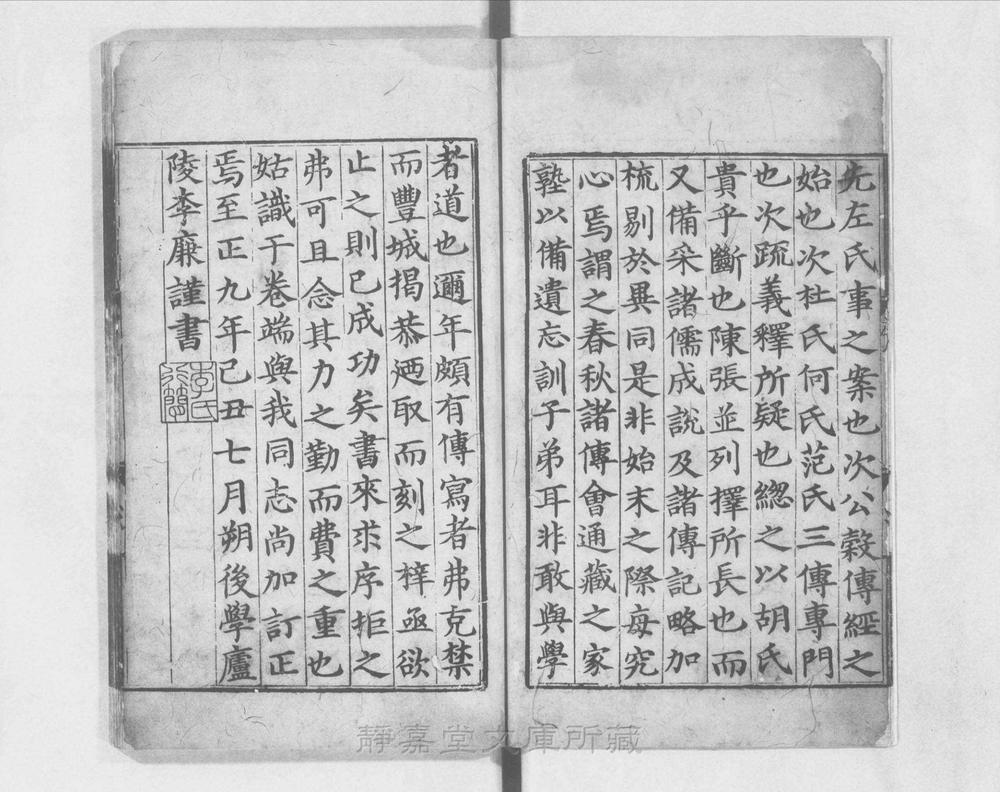 先左氏事之案也次公穀傳經之
始也次杜氏何氏范氏三傳專門
也次疏義釋所疑也緫之以胡氏
貴乎斷也陳張並列擇所長也而
又備采諸儒成說及諸傳記略加
梳剔於異同是非始末之際毎究
心焉謂之春秋諸傳會通藏之家
塾以備遺忘訓子弟耳非敢與學
者道也邇年頗有傳寫者弗克禁
而豐城揭恭廼取而刻之梓亟欲
止之則已成功矣書來求序拒之
弗可且念其力之勤而費之重也
姑識于卷端與我同志尚加訂正
焉至正九年己丑七月朔後學廬
陵李廉謹書
李氏
行簡
靜嘉堂文庫所藏